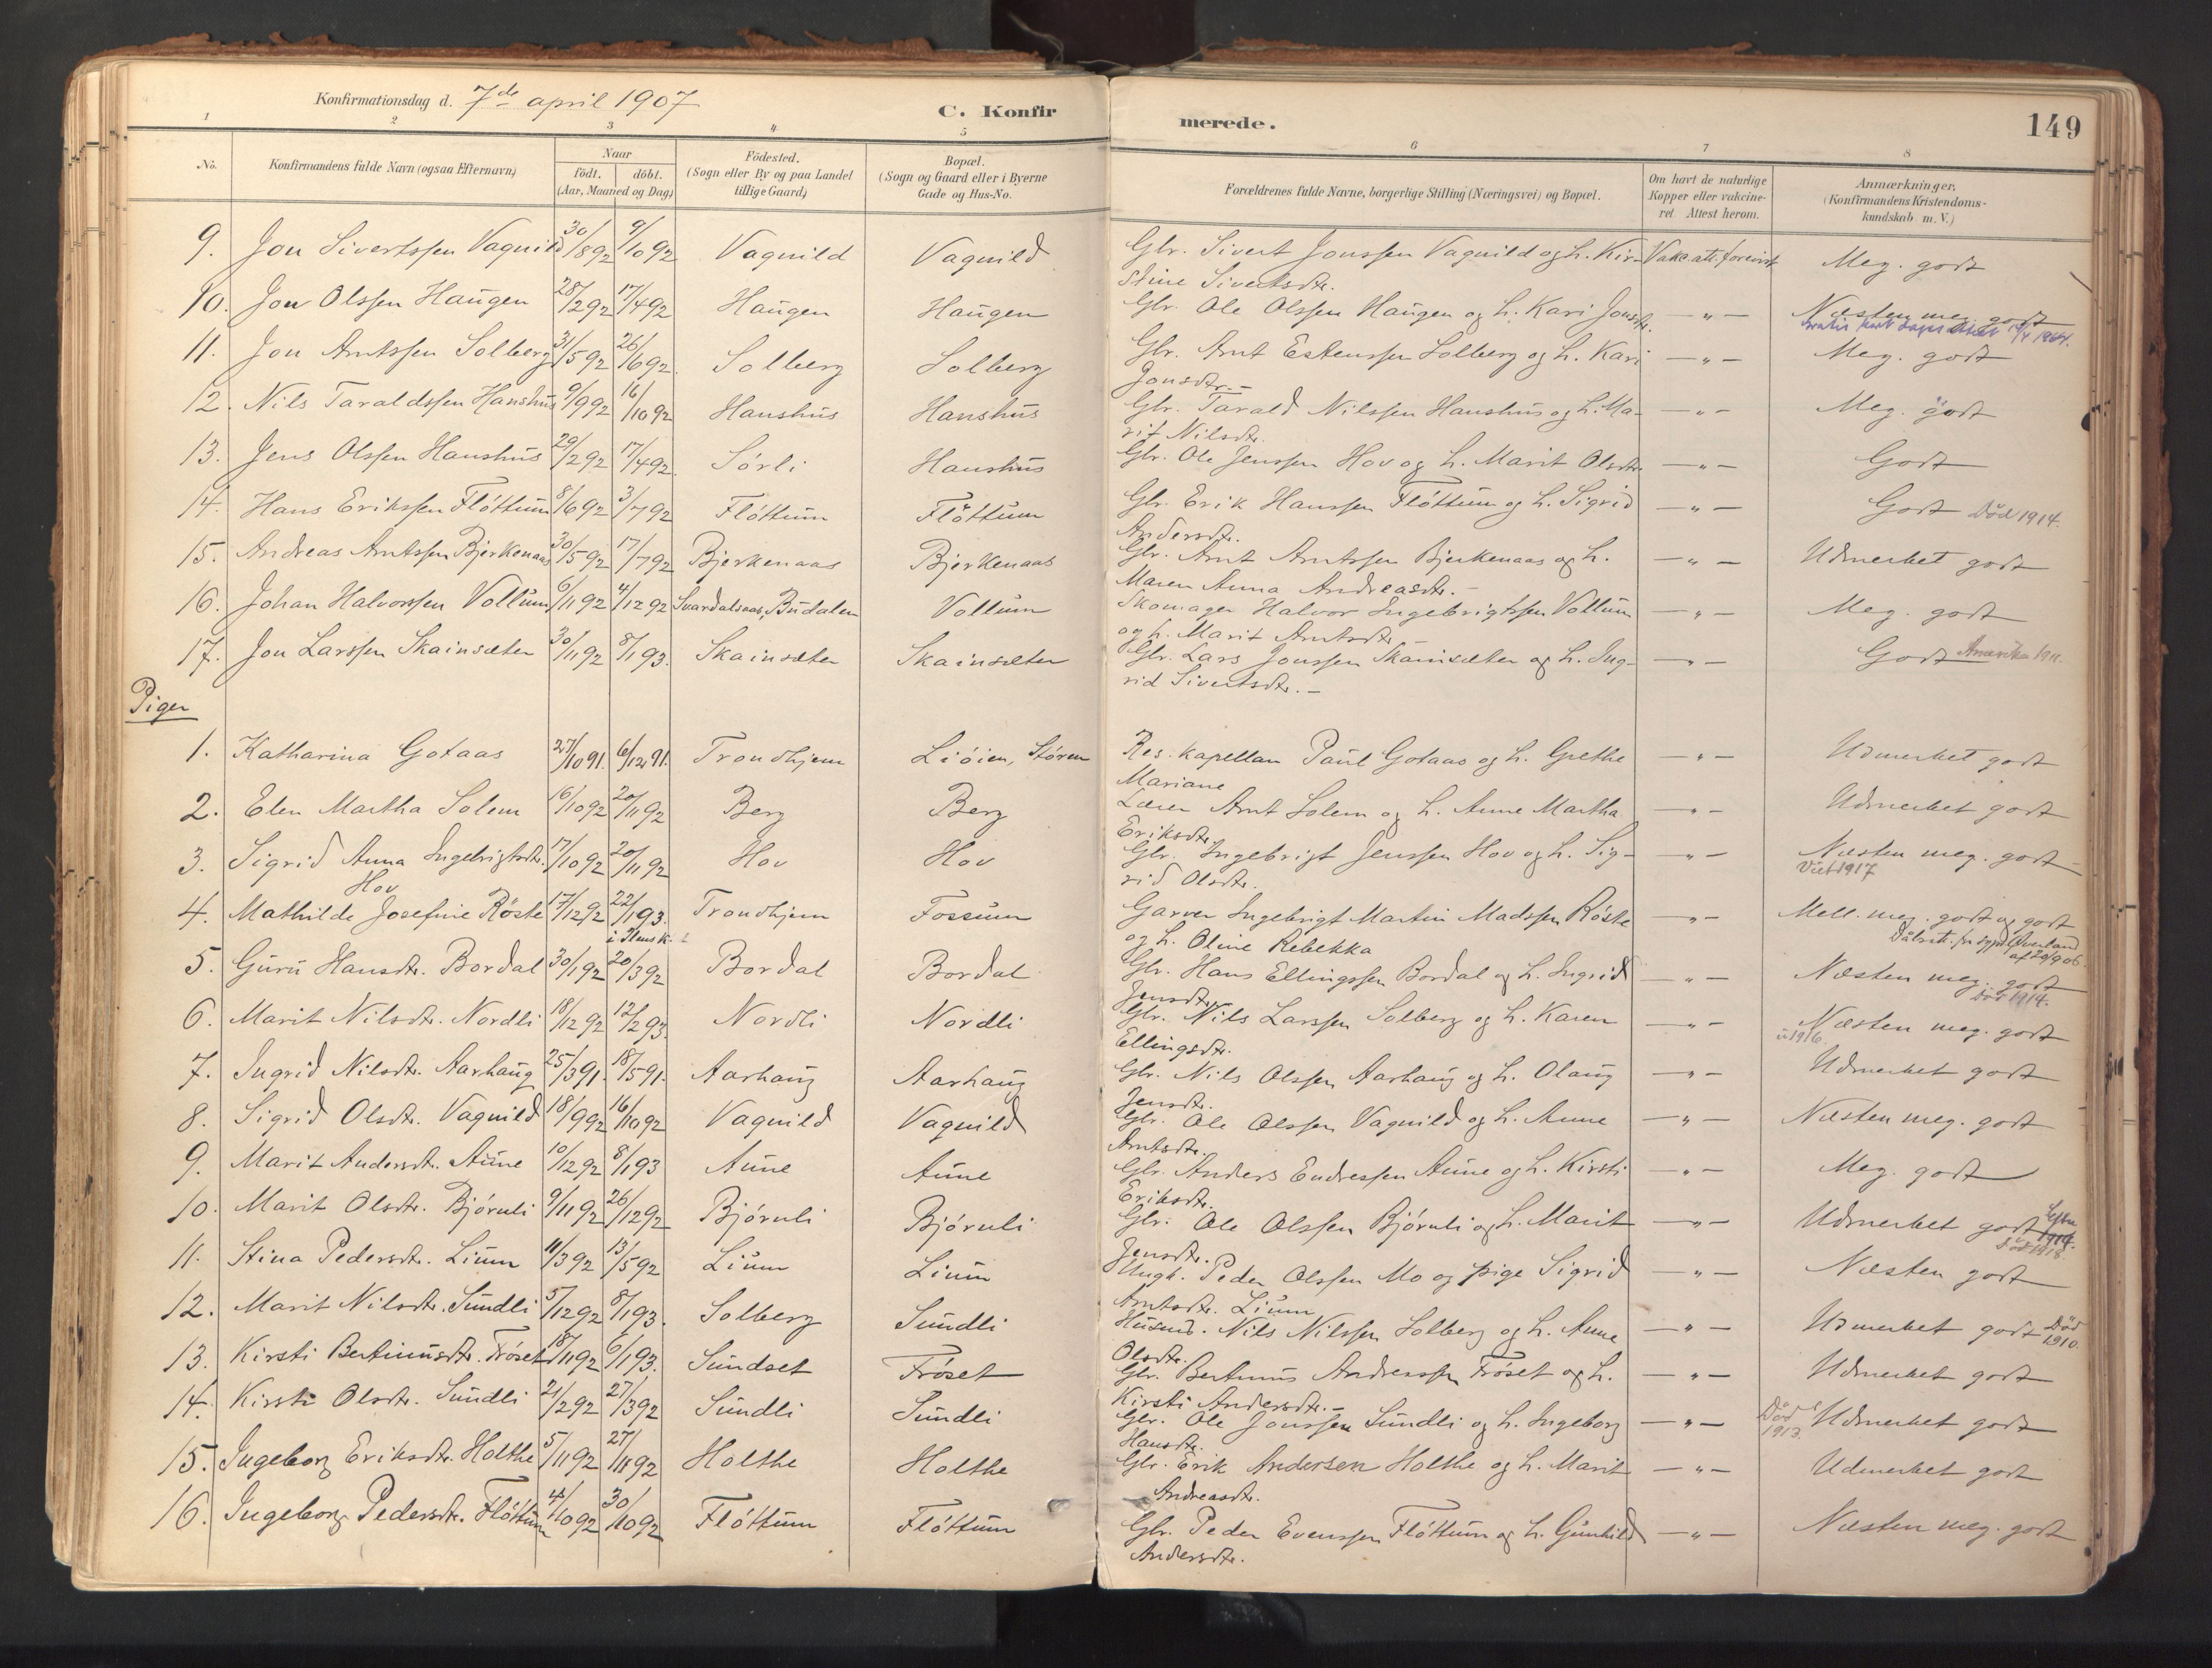 Konfirmationsdag d. 7de april 1907
C. Konfir
merede.
149
1 2 3 4 5 6 7 8
No. Konfirmandens fulde Navn (ogsaa Efternavn) Naar födt. döbt. (Aar, Maaned og Dag) Födested. (Sogn eller By og paa Landet tillige Gaard) Bopæl. (Sogn og Gaard eller i Byerne Gade og Hus-No. Forældrenes fulde Navne, borgerlige Stilling (Næringsvei) og Bopæl. Om havt de naturlige Kopper eller vakcineret. Attest herom. Anmærkninger, (Konfirmandens Kristendomskundskab m. V.)
9. Jon Sivertssen Vagnild 30/8 92 9/10 92 Vagnild Vagnild Gbr. Sivert Jonssen Vagnild og h. Kir- Vakc att forevist Meg. godt
stine Sivertsdtr.
10. Jon Olssen Haugen 28/2 92 17/4 92 Haugen Haugen Gbr. Ole Olssen Haugen og h. Kari Jonsdtr. — " — Næsten meg. godt
11. Jon Arntssen Solberg 31/5 92 26/6 92. Solberg Solberg Gbr. Arnt Estenssen Solberg og h. Kari — " — Meg. godt
Jonsdtr. —
12. Nils Taraldssen Hanshus 9/9 92 16/10 92 Hanshus Hanshus Gbr. Tarald Nilssen Hanshus og h. Ma- — " — Meg. godt
rit Nilsdtr.
13. Jens Olssen Hanshus 29/2 92 17/4 92. Sörli Hanshus Gbr. Ole Jenssen Hov og h. Marit Olsdtr. — " — Godt
14. Hans Erikssen Flöttum 8/6 92 3/7 92 Flöttum Flöttum Gbr. Erik Hanssen Flöttum og h. Sigrid — " — Godt Död 1914.
Andersdtr.
15. Andreas Arntssen Bjerkenaas 30/5 92 17/7 92 Bjerkenaas Bjerkenaas Gbr. Arnt Arntssen Bjerkenaas og h. — " — Udmerket godt
Maren Anna Andreasdtr. —
16. Johan Halvorssen Vollum 6/11 92 4/12 92 Svardalsaas, Budalen Vollum Skomager Halvor Ingebrigtssen Vollum — " — Meg. godt
og h. Marit Arntsdtr.
17. Jon Larssen Skainsæter 30/11 92 8/1 93. Skainsæter Skainsæter Gbr. Lars Jonssen Skainsæter og h. Ing- — " — Godt Amerika 1911.
rid Sivertsdtr. —
Piger
1. Katharina Gotaas 27/10 91. 6/12 91. Trondhjem Liöien, Stören Res. kapellan Paul Gotaas og h. Grethe — " — Udmerket godt
Mariane
2. Elen Martha Solem 16/10 92 20/11 92 Berg Berg Lærer Arnt Solem og h. Anne Martha — " — Udmerket godt
Eriksdtr.
3. Sigrid Anna Ingebrigtsdtr. 17/10 92 20/11 92 Hov Hov Gbr. Ingebrigt Jenssen Hov og h. Sig- — " — Næsten meg. godt
Hov rid Olsdtr. Viet 1917
4. Mathilde Josefine Röste 17/12 92 22/1 93. Trondhjem Fossum Garver Ingebrigt Martin Madssen Röste " — Mell. meg. godt og godt
og h. Oline Rebekka
5. Guru Hansdtr. Bordal 30/1 92 20/3 92 Bordal Bordal Gbr. Hans Ellingssen Bordal og h. Ingrid — " — Næsten meg. godt
Jensdtr. Död 1914.
6. Marit Nilsdtr. Nordli 18/12 92 12/2 93. Nordli Nordli Gbr. Nils Larssen Solberg og h. Karen — " — Næsten meg. godt
Ellingsdtr.
7. Ingrid Nilsdtr. Aarhaug 25/3 91. 18/5 91. Aarhaug Aarhaug Gbr. Nils Olssen Aarhaug og h. Olaug — " — Udmerket godt
Jensdtr.
8. Sigrid Olsdtr. Vagnild 18/9 92 16/10 92 Vagnild Vagnild Gbr. Ole Olssen Vagnild og h. Anne — " — Næsten meg. godt
Arntsdtr.
9. Marit Andersdtr. Aune 10/12 92 8/1 93 Aune Aune Gbr. Anders Endressen Aune og h. Kirsti — " — Meg. godt
Eriksdtr.
10. Marit Olsdtr. Björnli 9/11 92 26/12 92 Björnli Björnli Gbr. Ole Olssen Björnli og h. Marit — " — Udmerket godt
Jensdtr. Död 1918
11. Stina Pedersdtr. Lium 11/3 92 13/5 92 Lium Lium Ungk. Peder Olssen Mo og pige Sigrid — " — Næsten godt
Arntsdtr. Lium
12. Marit Nilsdtr. Sundli 5/12 92 8/1 93. Solberg Sundli Husmd. Nils Nilssen Solberg og h. Anne — " — Udmerket godt Död 1910.
Olsdtr.
13. Kirsti Bertinusdtr. Fröset 18/11 92 6/1 93. Sundset Fröset Gbr. Bertinus Andreassen Fröset og h. — " — Udmerket godt
Kirsti Andersdtr. —
14. Kirsti Olsdtr. Sundli 21/2 92 27/3 92 Sundli Sundli Gbr. Ole Jonssen Sundli og h. Ingeborg — " — Död 1913. Udmerket godt
Hansdtr.
15. Ingeborg Eriksdtr. Holthe 5/11 92 27/11 92 Holthe Holthe Gbr. Erik Andersen Holthe og h. Marit — " — Udmerket godt
Andreasdtr.
16. Ingeborg Pedersdtr. Flöttum 4/10 92 30/10 92 Flöttum Flöttum Gbr. Peder Evenssen Flöttum og h. Gunhild — " — Næsten meg. godt
Andersdtr.